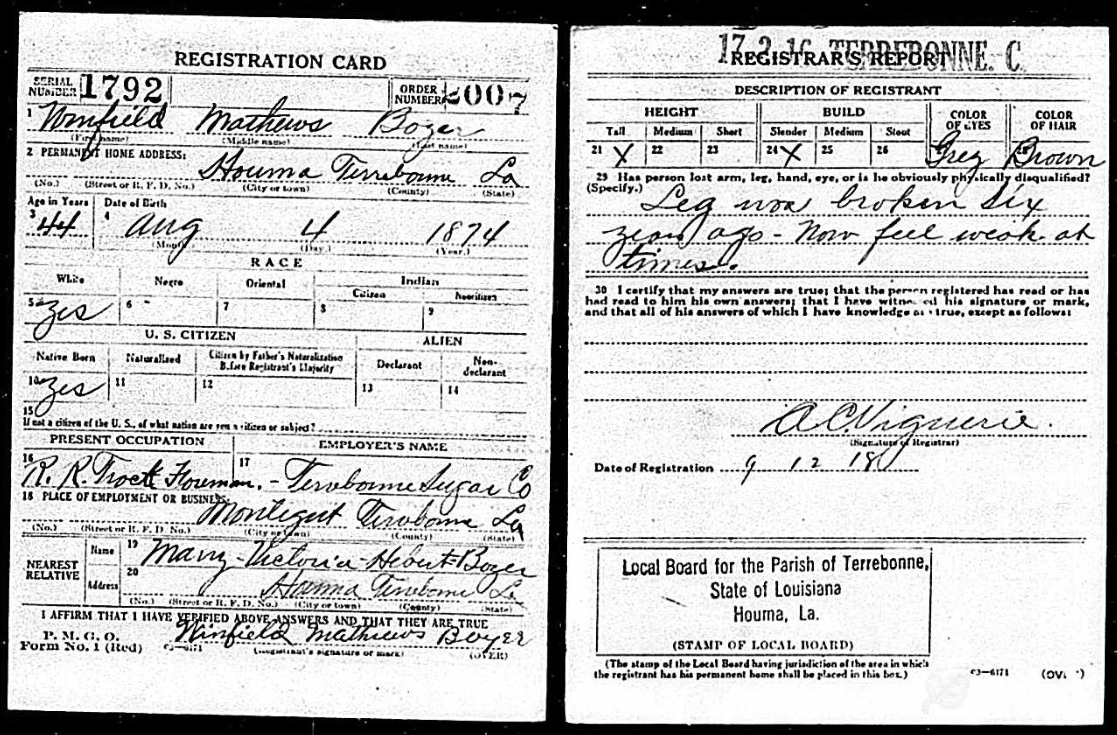 REGISTRATION CARD
SERIAL NUMBER 1792 ORDER NUMBER 2007
1 Winfield Mathews Boyer
(First name) (Middle name) (Last name)
2 PERMANENT HOME ADDRESS:
Houma Terrebonne La
(No.) (Street or R. F. D. No.) (City or town) (County) (State)
Age in Years Date of Birth
3 44 4 Aug 4 1874
(Month) (Day) (Year)
RACE
White Negro Oriental Indian
Citizen Noncitizen
5 Yes 6 7 8 9
U. S. CITIZEN ALIEN
Native Born Naturalized Citizen by Father's Naturalization Before Registrant's Majority Declarant Non-declarant
10 Yes 11 12 13 14
15
If not a citizen of the U. S., of what nation are you a citizen or subject?
PRESENT OCCUPATION EMPLOYER'S NAME
16 R. R. 17 Terrebonne Sugar Co
18 PLACE OF EMPLOYMENT OR BUSINESS:
Montegut Terrebonne La
(No.) (Street or R. F. D. No.) (City or town) (County) (State)
NEAREST RELATIVE
Name 19 Mary-Victoria-Hebert-Boyer
Address 20 Houma Terrebonne La
(No.) (Street or R. F. D. No.) (City or town) (County) (State)
I AFFIRM THAT I HAVE VERIFIED ABOVE ANSWERS AND THAT THEY ARE TRUE
P. M. G. O.
Form No. 1 (Red) Winfield Mathews Boyer
(Registrant's signature or mark) (OVER)
17-2-16 TERREBONNE. C.
REGISTRAR'S REPORT
DESCRIPTION OF REGISTRANT
HEIGHT BUILD COLOR OF EYES COLOR OF HAIR
Tall Medium Short Slender Medium Stout
21 X 22 23 24 X 25 26 Grey Brown
29 Has person lost arm, leg, hand, eye, or is he obviously physically disqualified?
(Specify.) Leg was broken six
years ago - Now feel weak at
times.
30 I certify that my answers are true; that the person registered has read or has
had read to him his own answers; that I have witnessed his signature or mark,
and that all of his answers of which I have knowledge are true, except as follows:
A C Viguerie.
(Signature of Registrar)
Date of Registration 9 12 18
Local Board for the Parish of Terrebonne,
State of Louisiana
Houma, La.
(STAMP OF LOCAL BOARD)
(The stamp of the Local Board having jurisdiction of the area in which
the registrant has his permanent home shall be placed in this box.)
03-6171 (OVER)